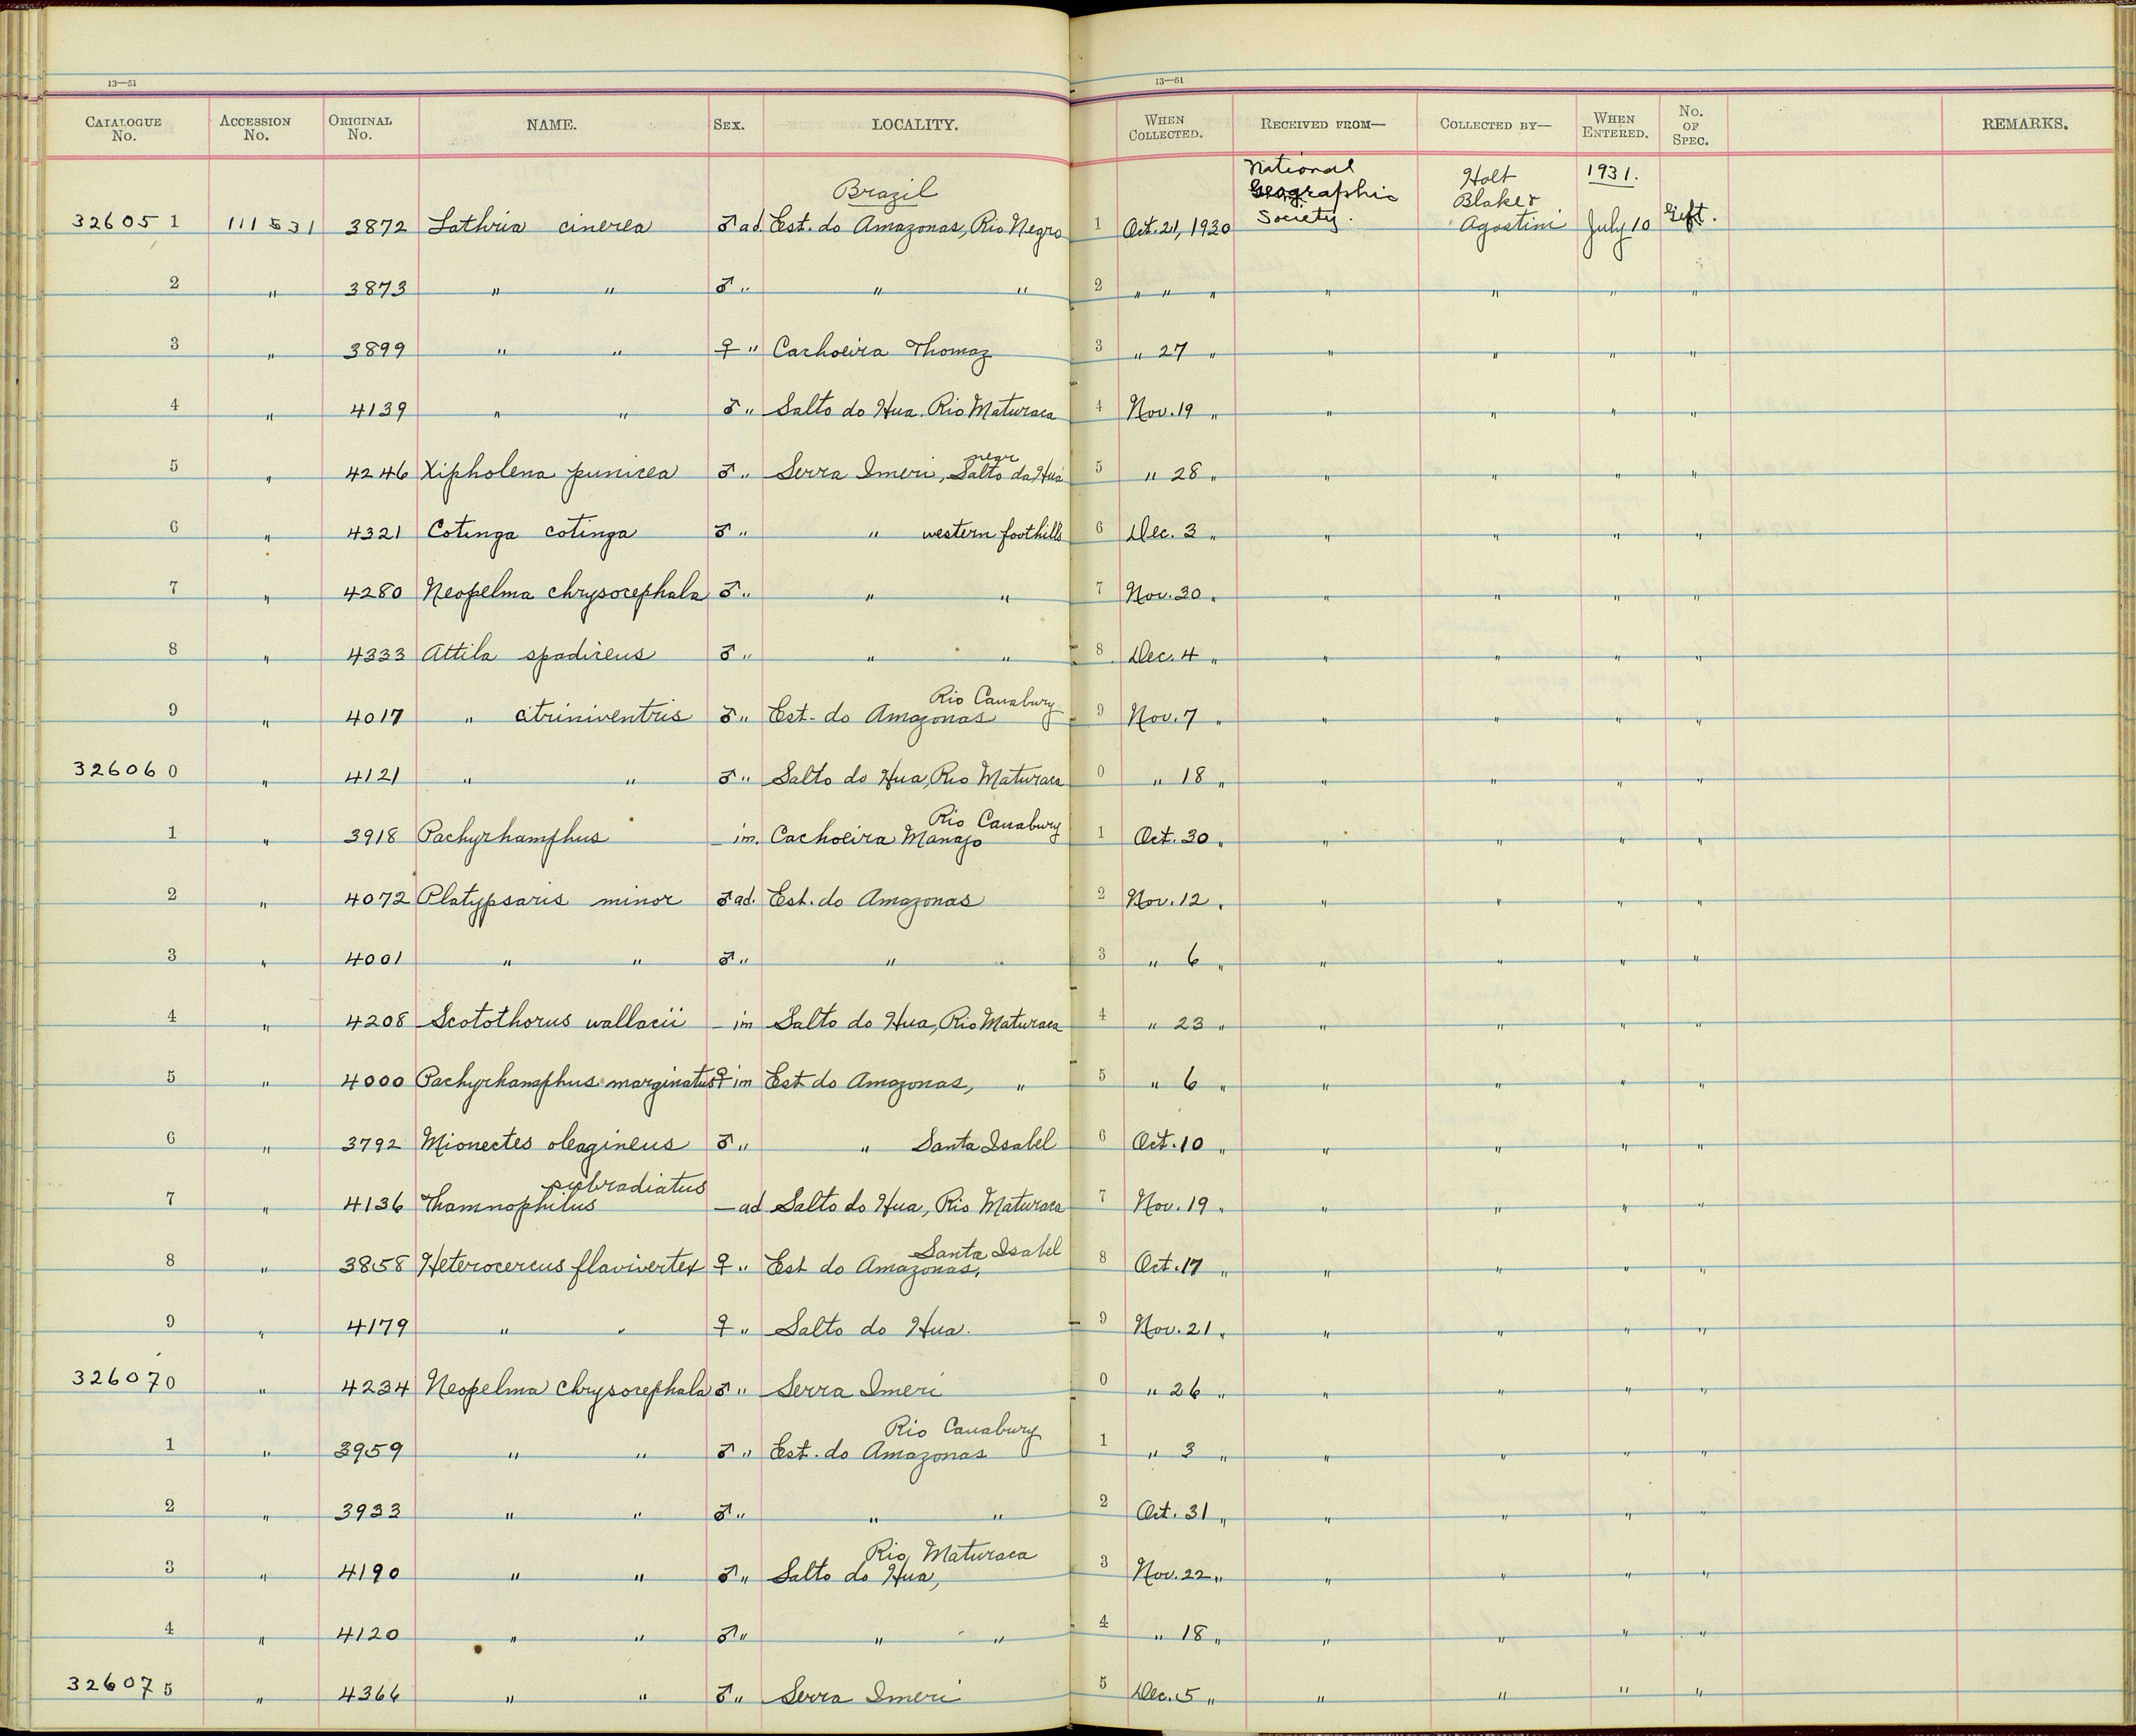 13—51 13—51
CATALOGUE No. ACCESSION No. ORIGINAL No. NAME. SEX. LOCALITY. WHEN COLLECTED. RECEIVED FROM— COLLECTED BY— WHEN ENTERED. No. OF SPEC. REMARKS.
Brazil National Geographic Society. Holt Blake & Agostini 1931.
326051 111531 3872 Lathria cinerea ♂ ad. Est. do Amazonas, Rio Negro 1 Oct. 21, 1930 July 10 Gift.
2 " 3873 " " ♂ " " " 2 " " " " " " "
3 " 3899 " " ♀ " Cachoeira Thomaz 3 " 27 " " " " "
4 " 4139 " " ♂ " Salto do Hua. Rio Maturaca 4 Nov. 19 " " " " "
near
5 " 4246 Xipholena punicea ♂ " Serra Imeri, Salto da Hua 5 " 28 " " " " "
6 " 4321 Cotinga cotinga ♂ " " western foothills 6 Dec. 3 " " " " "
7 " 4280 Neopelma chrysocephala ♂ " " " 7 Nov. 30 " " " " "
8 " 4333 Attila spadiceus ♂ " " " 8 Dec. 4 " " " " "
Rio Cauabury
9 " 4017 " citriniventris ♂ " Est. do Amazonas 9 Nov. 7 " " " " "
326060 " 4121 " " ♂ " Salto do Hua, Rio Maturaca 0 " 18 " " " " "
Rio Cauabury
1 " 3918 Pachyrhamphus — im. Cachoeira Manajo 1 Oct. 30 " " " " "
2 " 4072 Platypsaris minor ♂ ad. Est. do Amazonas 2 Nov. 12 " " " " "
3 " 4001 " " ♂ " " 3 " 6 " " " " "
4 " 4208 Scotothorus wallacii — im Salto do Hua, Rio Maturaca 4 " 23 " " " " "
5 " 4000 Pachyrhamphus marginatus ♀ im Est do Amazonas, " 5 " 6 " " " " "
6 " 3792 Mionectes oleagineus ♂ " " Santa Isabel 6 Oct. 10 " " " " "
subradiatus
7 " 4136 Thamnophilus — ad Salto do Hua, Rio Maturaca 7 Nov. 19 " " " " "
Santa Isabel
8 " 3858 Heterocercus flavivertex ♀ " Est do Amazonas, 8 Oct. 17 " " " " "
9 " 4179 " " ♀ " Salto do Hua. 9 Nov. 21 " " " " "
326070 " 4234 Neopelma chrysocephala ♂ " Serra Imeri 0 " 26 " " " " "
Rio Cauabury
1 " 3959 " " ♂ " Est. do Amazonas 1 " 3 " " " " "
2 " 3933 " " ♂ " " " 2 Oct. 31 " " " " "
Rio Maturaca
3 " 4190 " " ♂ " Salto do Hua, 3 Nov. 22 " " " " "
4 " 4120 " " ♂ " " " 4 " 18 " " " " "
326075 " 4366 " " ♂ " Serra Imeri 5 Dec. 5 " " " " "